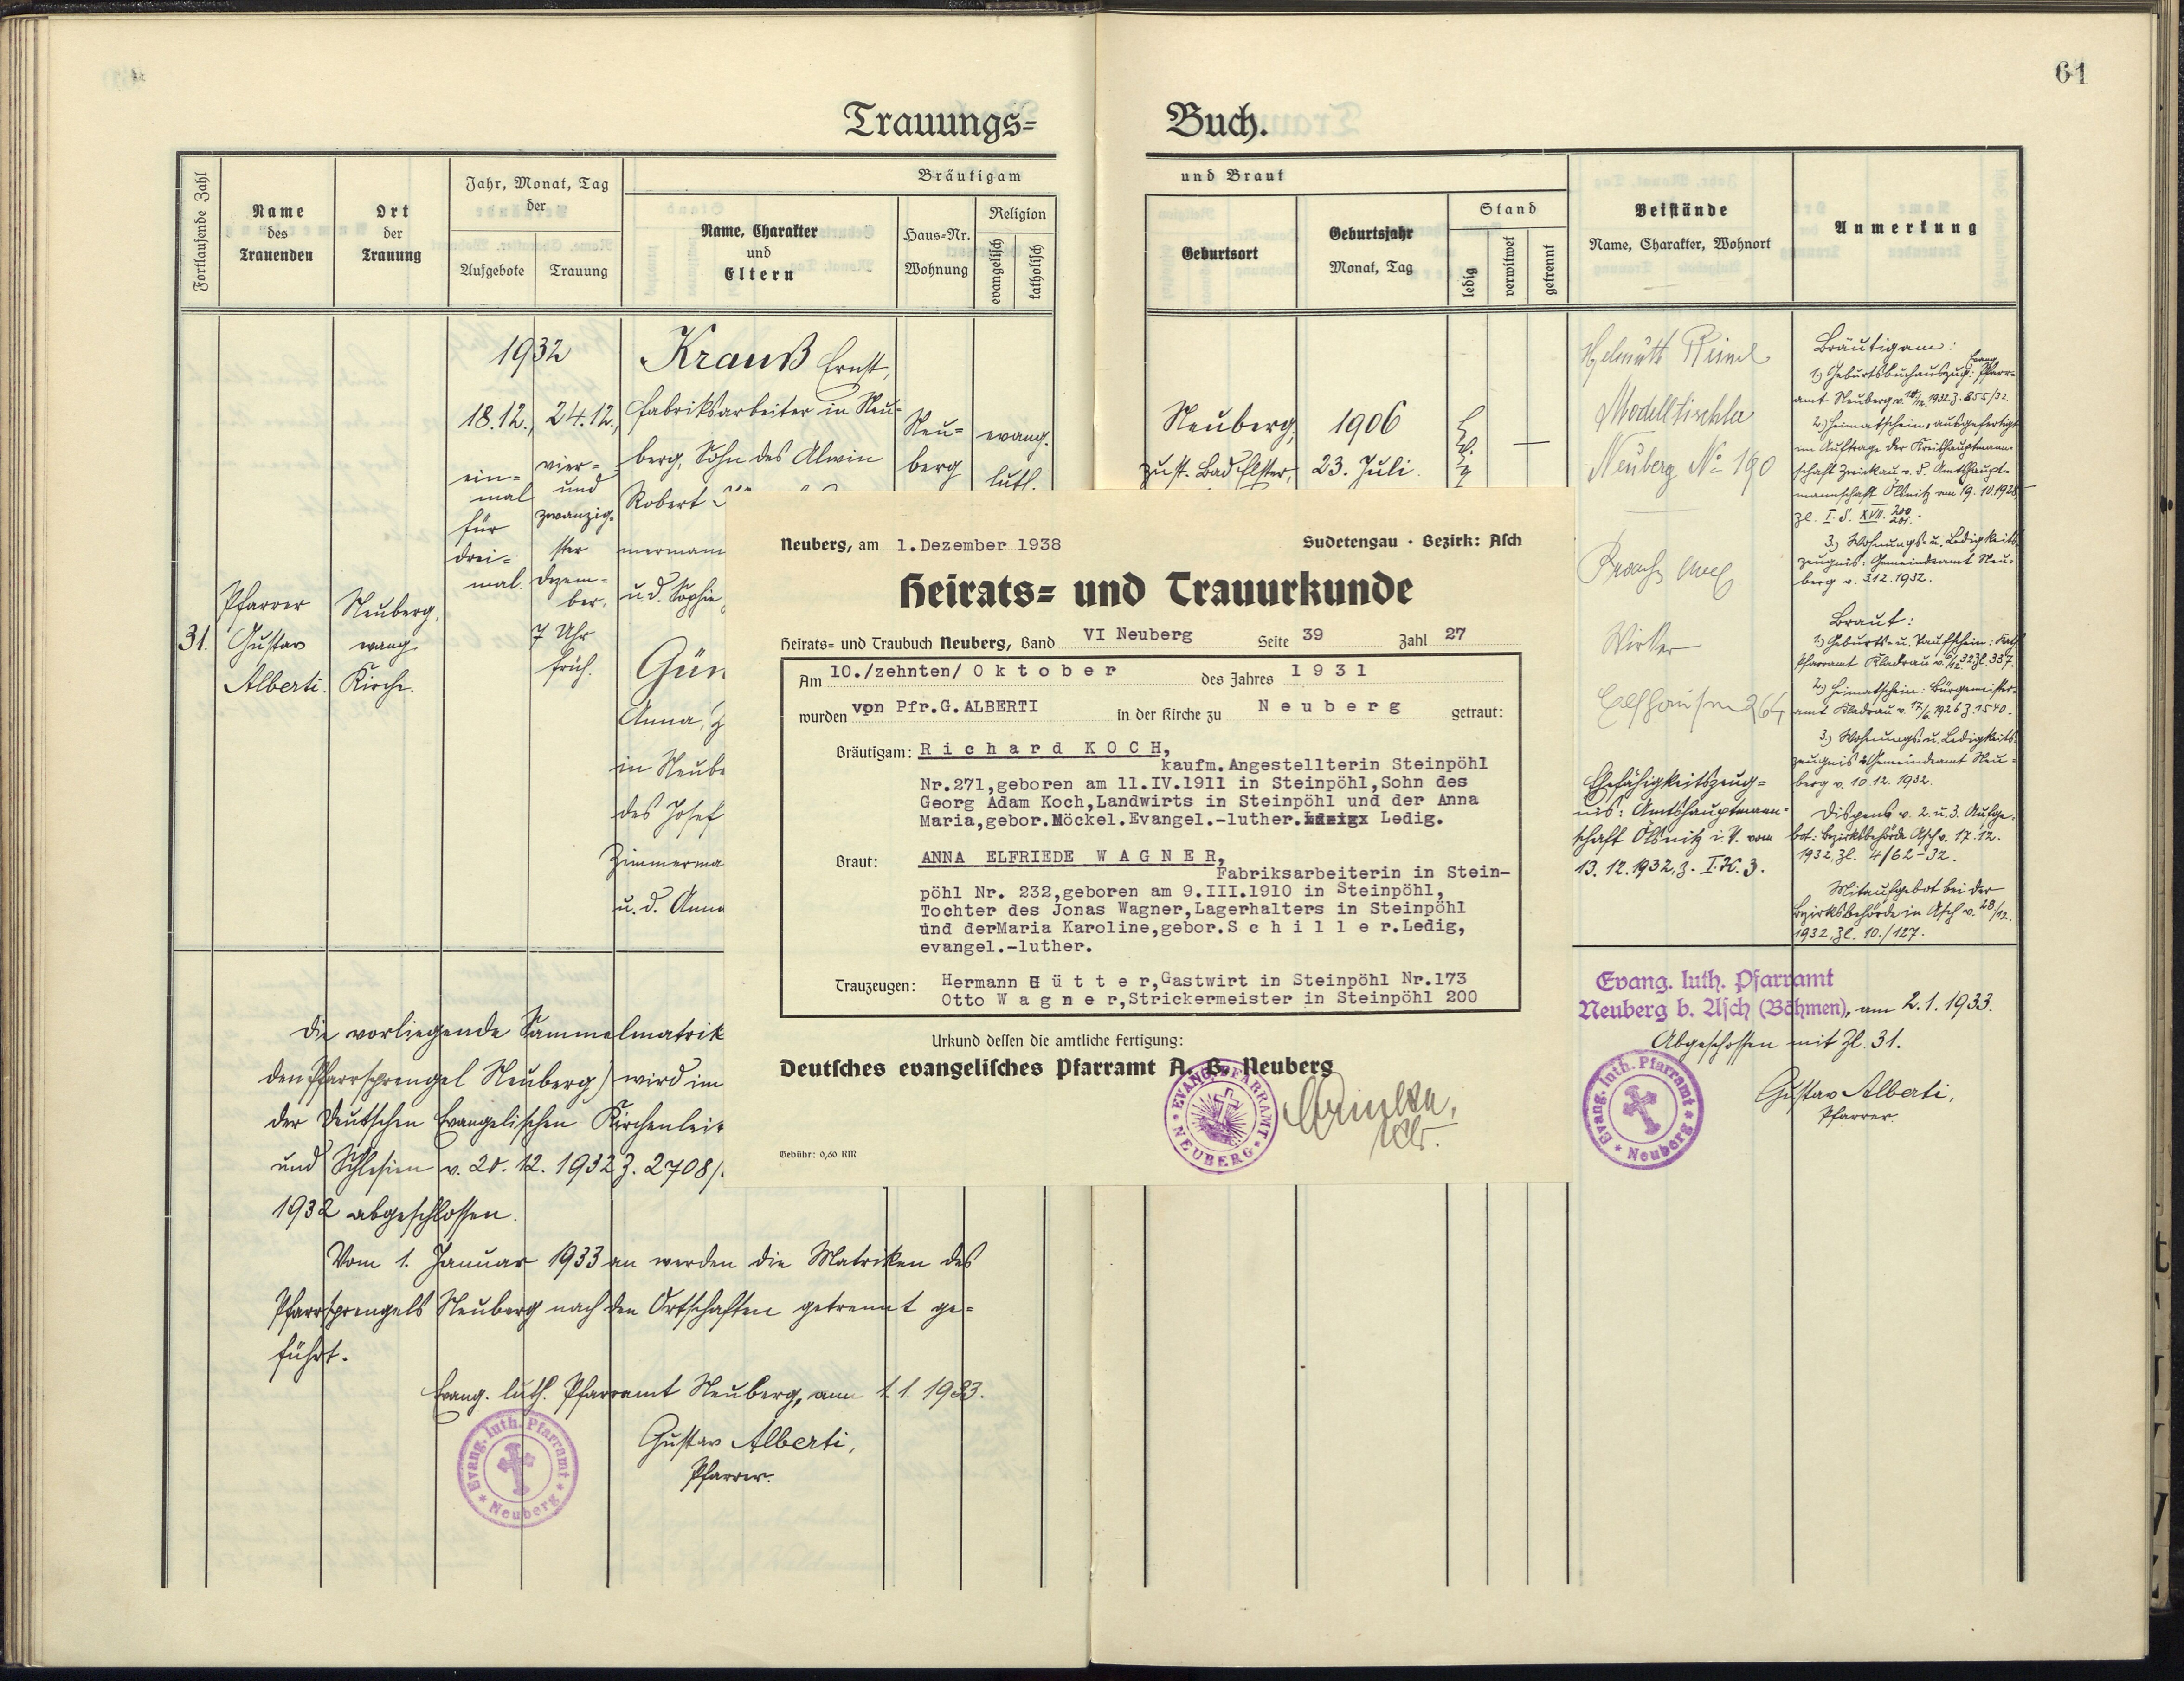 61
Trauungs=
Buch.
Fortlaufende Zahl
Name
des
Trauenden
Ort
der
Trauung
Jahr, Monat, Tag
der
Aufgebote
Trauung
Bräutigam
Name, Charakter
und
Eltern
Haus=Nr.
Wohnung
Religion
evangelisch
katholisch
und Braut
Geburtsort
Geburtsjahr
Monat, Tag
Stand
ledig
verwitwet
getrennt
Beistände
Name, Charakter, Wohnort
Anmerkung
31.
Pfarrer
Gustav
Alberti.
Neuberg,
evang.
Kirche.
1932
18.12.,
ein=
mal
für
drei=
mal.
24.12.,
vier=
und
zwanzig=
ster
Dezem=
ber,
7 Uhr
früh.
Krauß Ernst,
Fabriksarbeiter in Neu=
berg, Sohn des Alwin
Robert
u. d. Sophie
Gün
Anna,
in Neube
des Josef
Zimmerma
u. d. Anna
Neu=
berg
evang.
luth.
Neuberg,
zust. Bad Elster,
1906
23. Juli.
Helmuth
Modelltischler
Neuberg No 190
Wirker
Ehefähigkeitszeug=
nis: Amtshauptmann=
schaft Ölsnitz i. V. vom
13.12.1932, Z. I.K.3.
Bräutigam:
1.) Geburtsbuchauszug: Evang. Pfarr=
amt Neuberg v. 1932 Z. 855/32.
2.) Heimatschein, ausgefertigt
im Auftrage der Kreishauptmann=
schaft Zwickau v. d. Amtshaupt=
mannschaft Ölsnitz am 19.10.1928
3.) Wohnungs= u. Ledigkeits=
zeugnis: Gemeindeamt Neu=
berg v. 3.12.1932.
Braut:
1.) Geburts= u. Taufschein: Kath.
Pfarramt Kladrau
2.) Heimatschein: Bürgermeister=
amt Kladrau v. 17/6. 1926 Z. 1540.
3.) Wohnungs= u. Ledigkeits=
zeugnis Gemeindeamt Neu=
berg v. 10.12.1932.
Dispens v. 2. u. 3. Aufge=
bot: Bezirksbehörde Asch v. 17.12.
1932, Zl. 4/62-32.
Mitaufgebot bei der
Bezirksbehörde in Asch v. 28/12.
1932, Zl. 10./127.
Neuberg, am 1.Dezember 1938
Sudetengau · Bezirk: Asch
Heirats= und Trauurkunde
Heirats= und Traubuch Neuberg, Band VI Neuberg Seite 39 Zahl 27
Am 10./zehnten/ Oktober des Jahres 1931
wurden von Pfr.G.ALBERTI in der Kirche zu Neuberg getraut:
Bräutigam: Richard KOCH,
kaufm.Angestellterin Steinpöhl
Nr.271,geboren am 11.IV.1911 in Steinpöhl,Sohn des
Georg Adam Koch,Landwirts in Steinpöhl und der Anna
Maria,gebor.Möckel.Evangel.-luther. Ledig.
Braut: ANNA ELFRIEDE WAGNER,
Fabriksarbeiterin in Stein-
pöhl Nr. 232,geboren am 9.III.1910 in Steinpöhl,
Tochter des Jonas Wagner,Lagerhalters in Steinpöhl
und derMaria Karoline,gebor.Schiller.Ledig,
evangel.-luther.
Trauzeugen: Hermann Hütter,Gastwirt in Steinpöhl Nr.173
Otto Wagner,Strickermeister in Steinpöhl 200
Urkund dessen die amtliche Fertigung:
Deutsches evangelisches Pfarramt A. B. Neuberg
EVANG. PFARRAMT NEUBERG
Gebühr: 0,60 RM
Evang. luth. Pfarramt
Neuberg b. Asch (Böhmen), am 2.1.1933.
Abgeschlossen mit Zl. 31.
Evang. luth. Pfarramt Neuberg
Gustav Alberti,
Pfarrer.
Die vorliegende Sammelmatrik
den Pfarrsprengel Neuberg) wird im
der Deutschen Evangelischen Kirchenlei
und Schlesien v. 20.12.1932 Z. 2708/
1932 abgeschlossen.
Vom 1. Januar 1933 an werden die Matriken des
Pfarrsprengels Neuberg nach den Ortschaften getrennt ge=
führt.
Evang. luth. Pfarramt Neuberg, am 1.1.1933.
Evang. luth. Pfarramt Neuberg
Gustav Alberti,
Pfarrer.